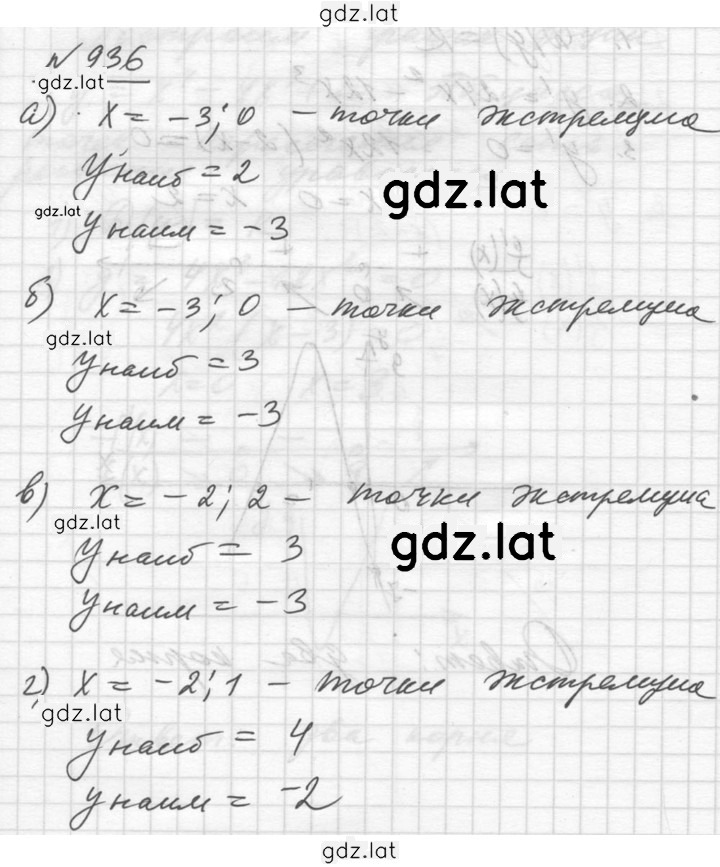 gdz.lat
№ 936
gdz.lat
а) x = -3; 0 - точки экстремума
yнаиб = 2
gdz.lat
gdz.lat
yнаим = -3
б) x = -3; 0 - точки экстремума
gdz.lat
yнаиб = 3
yнаим = -3
в) x = -2; 2 - точки экстремума
gdz.lat
gdz.lat
yнаиб = 3
yнаим = -3
г) x = -2; 1 - точки экстремума
gdz.lat
yнаиб = 4
yнаим = -2
gdz.lat